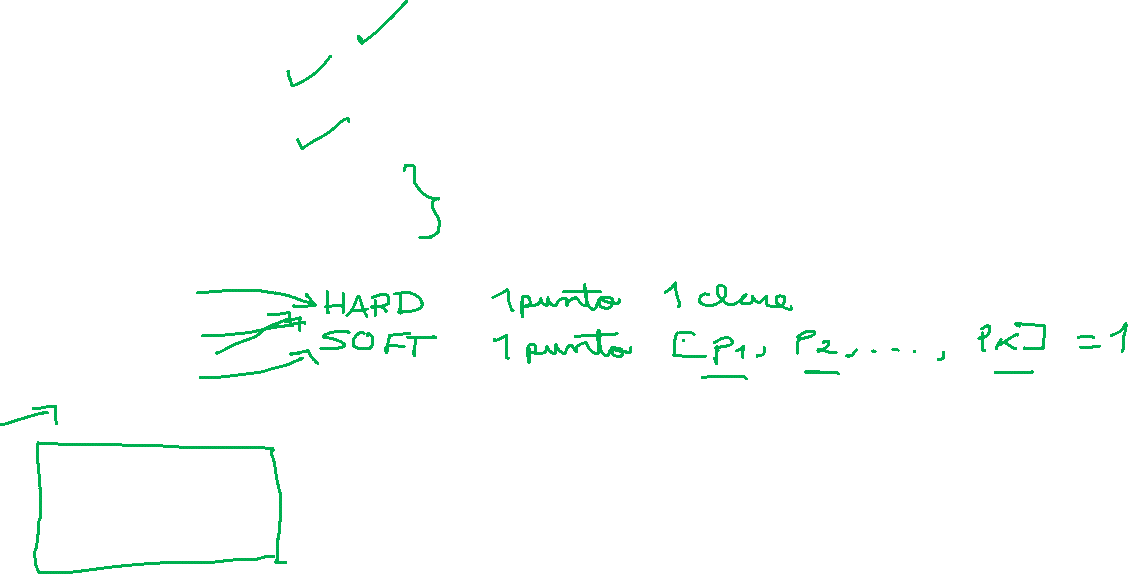 HARD 1 punto 1 clase
SOFT 1 punto [P1, P2, ..., PK] = 1